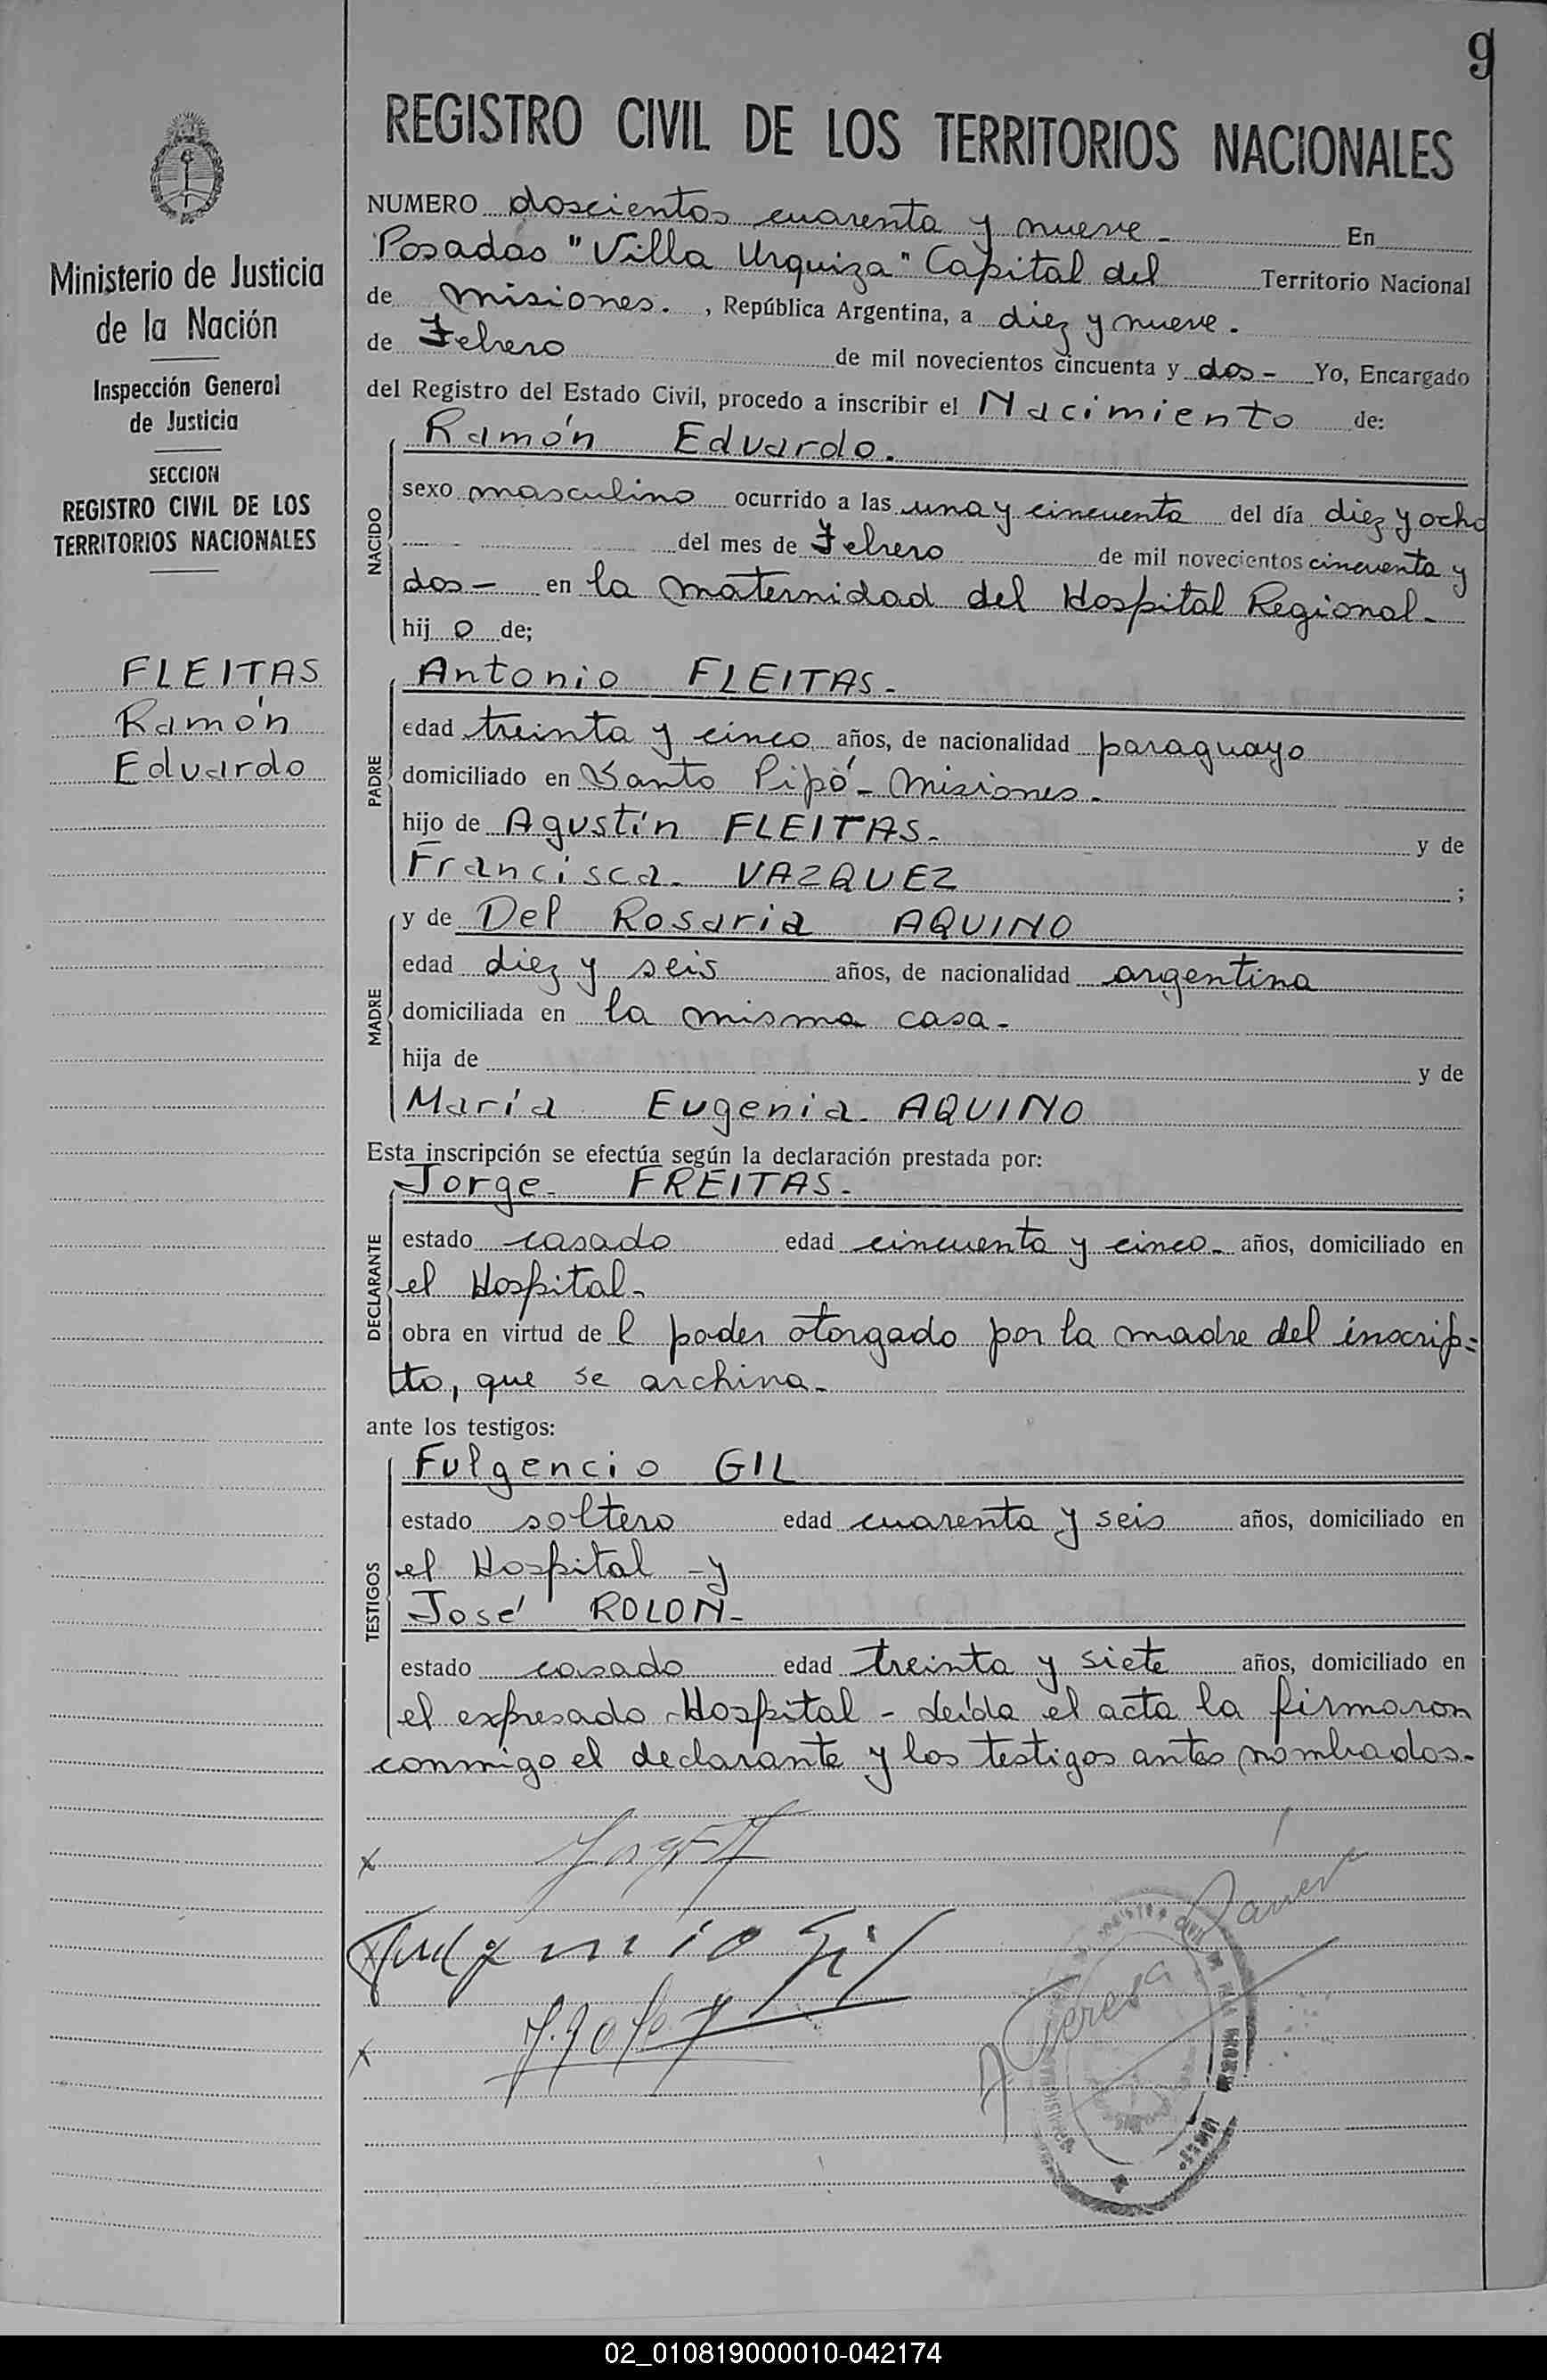 9
REGISTRO CIVIL DE LOS TERRITORIOS NACIONALES
Ministerio de Justicia
de la Nación
Inspección General
de Justicia
SECCION
REGISTRO CIVIL DE LOS
TERRITORIOS NACIONALES
FLEITAS
Ramón
Eduardo
NUMERO doscientos cuarenta y nueve - En
Posadas "Villa Urquiza" Capital del Territorio Nacional
de misiones. , República Argentina, a diez y nueve.
de Febrero de mil novecientos cincuenta y dos - Yo, Encargado
del Registro del Estado Civil, procedo a inscribir el Nacimiento de:
Ramón Eduardo.
NACIDO
sexo masculino ocurrido a las una y cincuenta del día diez y ocho
del mes de Febrero de mil novecientos cincuenta y
dos - en la maternidad del Hospital Regional -
hij o de;
Antonio FLEITAS -
PADRE
edad treinta y cinco años, de nacionalidad paraguayo
domiciliado en Santo Pipó - Misiones -
hijo de Agustín FLEITAS - y de
Francisca VAZQUEZ ;
y de Del Rosaria AQUINO
MADRE
edad diez y seis años, de nacionalidad argentina
domiciliada en la misma casa -
hija de y de
María Eugenia AQUINO
Esta inscripción se efectúa según la declaración prestada por:
Jorge FREITAS -
DECLARANTE
estado casado edad cincuenta y cinco - años, domiciliado en
el Hospital -
obra en virtud de l poder otorgado por la madre del inscrip=
to, que se archiva -
ante los testigos:
Fulgencio GIL
TESTIGOS
estado soltero edad cuarenta y seis años, domiciliado en
el Hospital - y
José ROLON -
estado casado edad treinta y siete años, domiciliado en
el expresado Hospital - Leída el acta la firmaron
conmigo el declarante y los testigos antes nombrados -
02_010819000010-042174